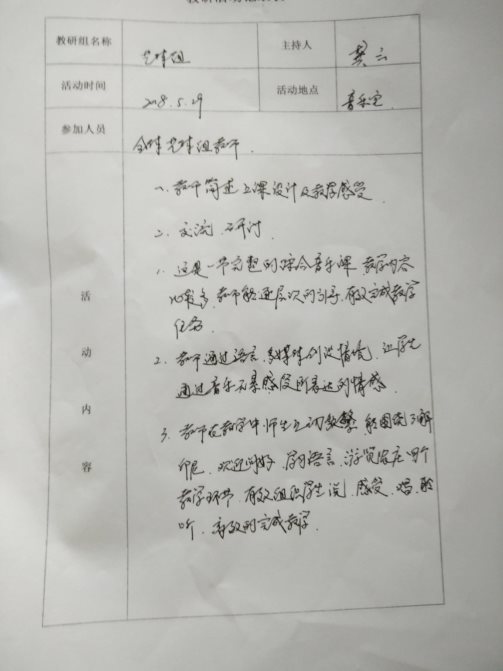 教研组名称 艺体组 主持人 龚云
活动时间 2018.5.29 活动地点 音乐室
参加人员 全体艺体组教师.
活动内容
一、教师简述上课设计及教学感受
二、交流 研讨
1、这是一节 的综合音乐课 教学内容
比较多,教师能逐层次的引导,有效完成教学
任务.
2、教师通过语言、多媒体创设情境,让学生
通过音乐 感受所表达的情感.
3、教师在教学中师生互动 ,能围绕了解
印尼、欢迎问好、学习语言、游览 四个
教学环节,有效组织学生说、感受、唱、聆
听,有效的完成教学.